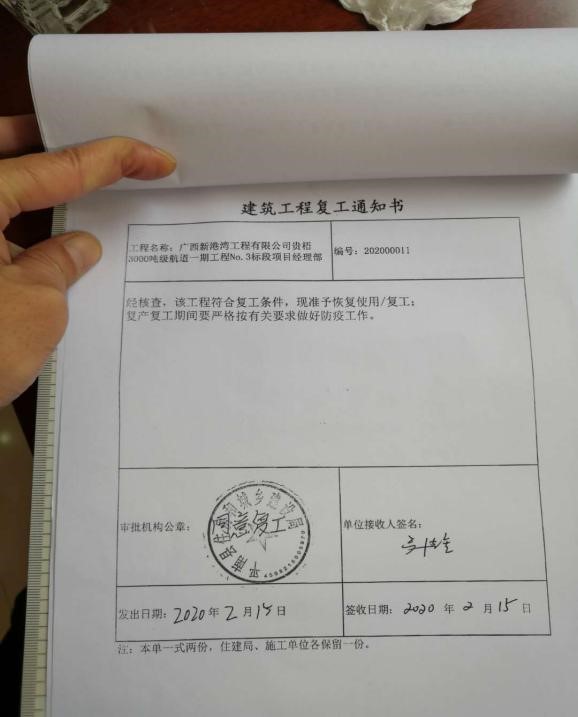 建筑工程复工通知书
工程名称：广西新港湾工程有限公司贵梧
3000吨级航道一期工程No.3标段项目经理部
编号：202000011
经核查，该工程符合复工条件，现准予恢复使用/复工；
复产复工期间要严格按有关要求做好防疫工作。
审批机构公章：
平南县住房和城乡建设局
同意复工
单位接收人签名：
发出日期：2020年2月15日
签收日期：2020年2月15日
注：本单一式两份，住建局、施工单位各保留一份。